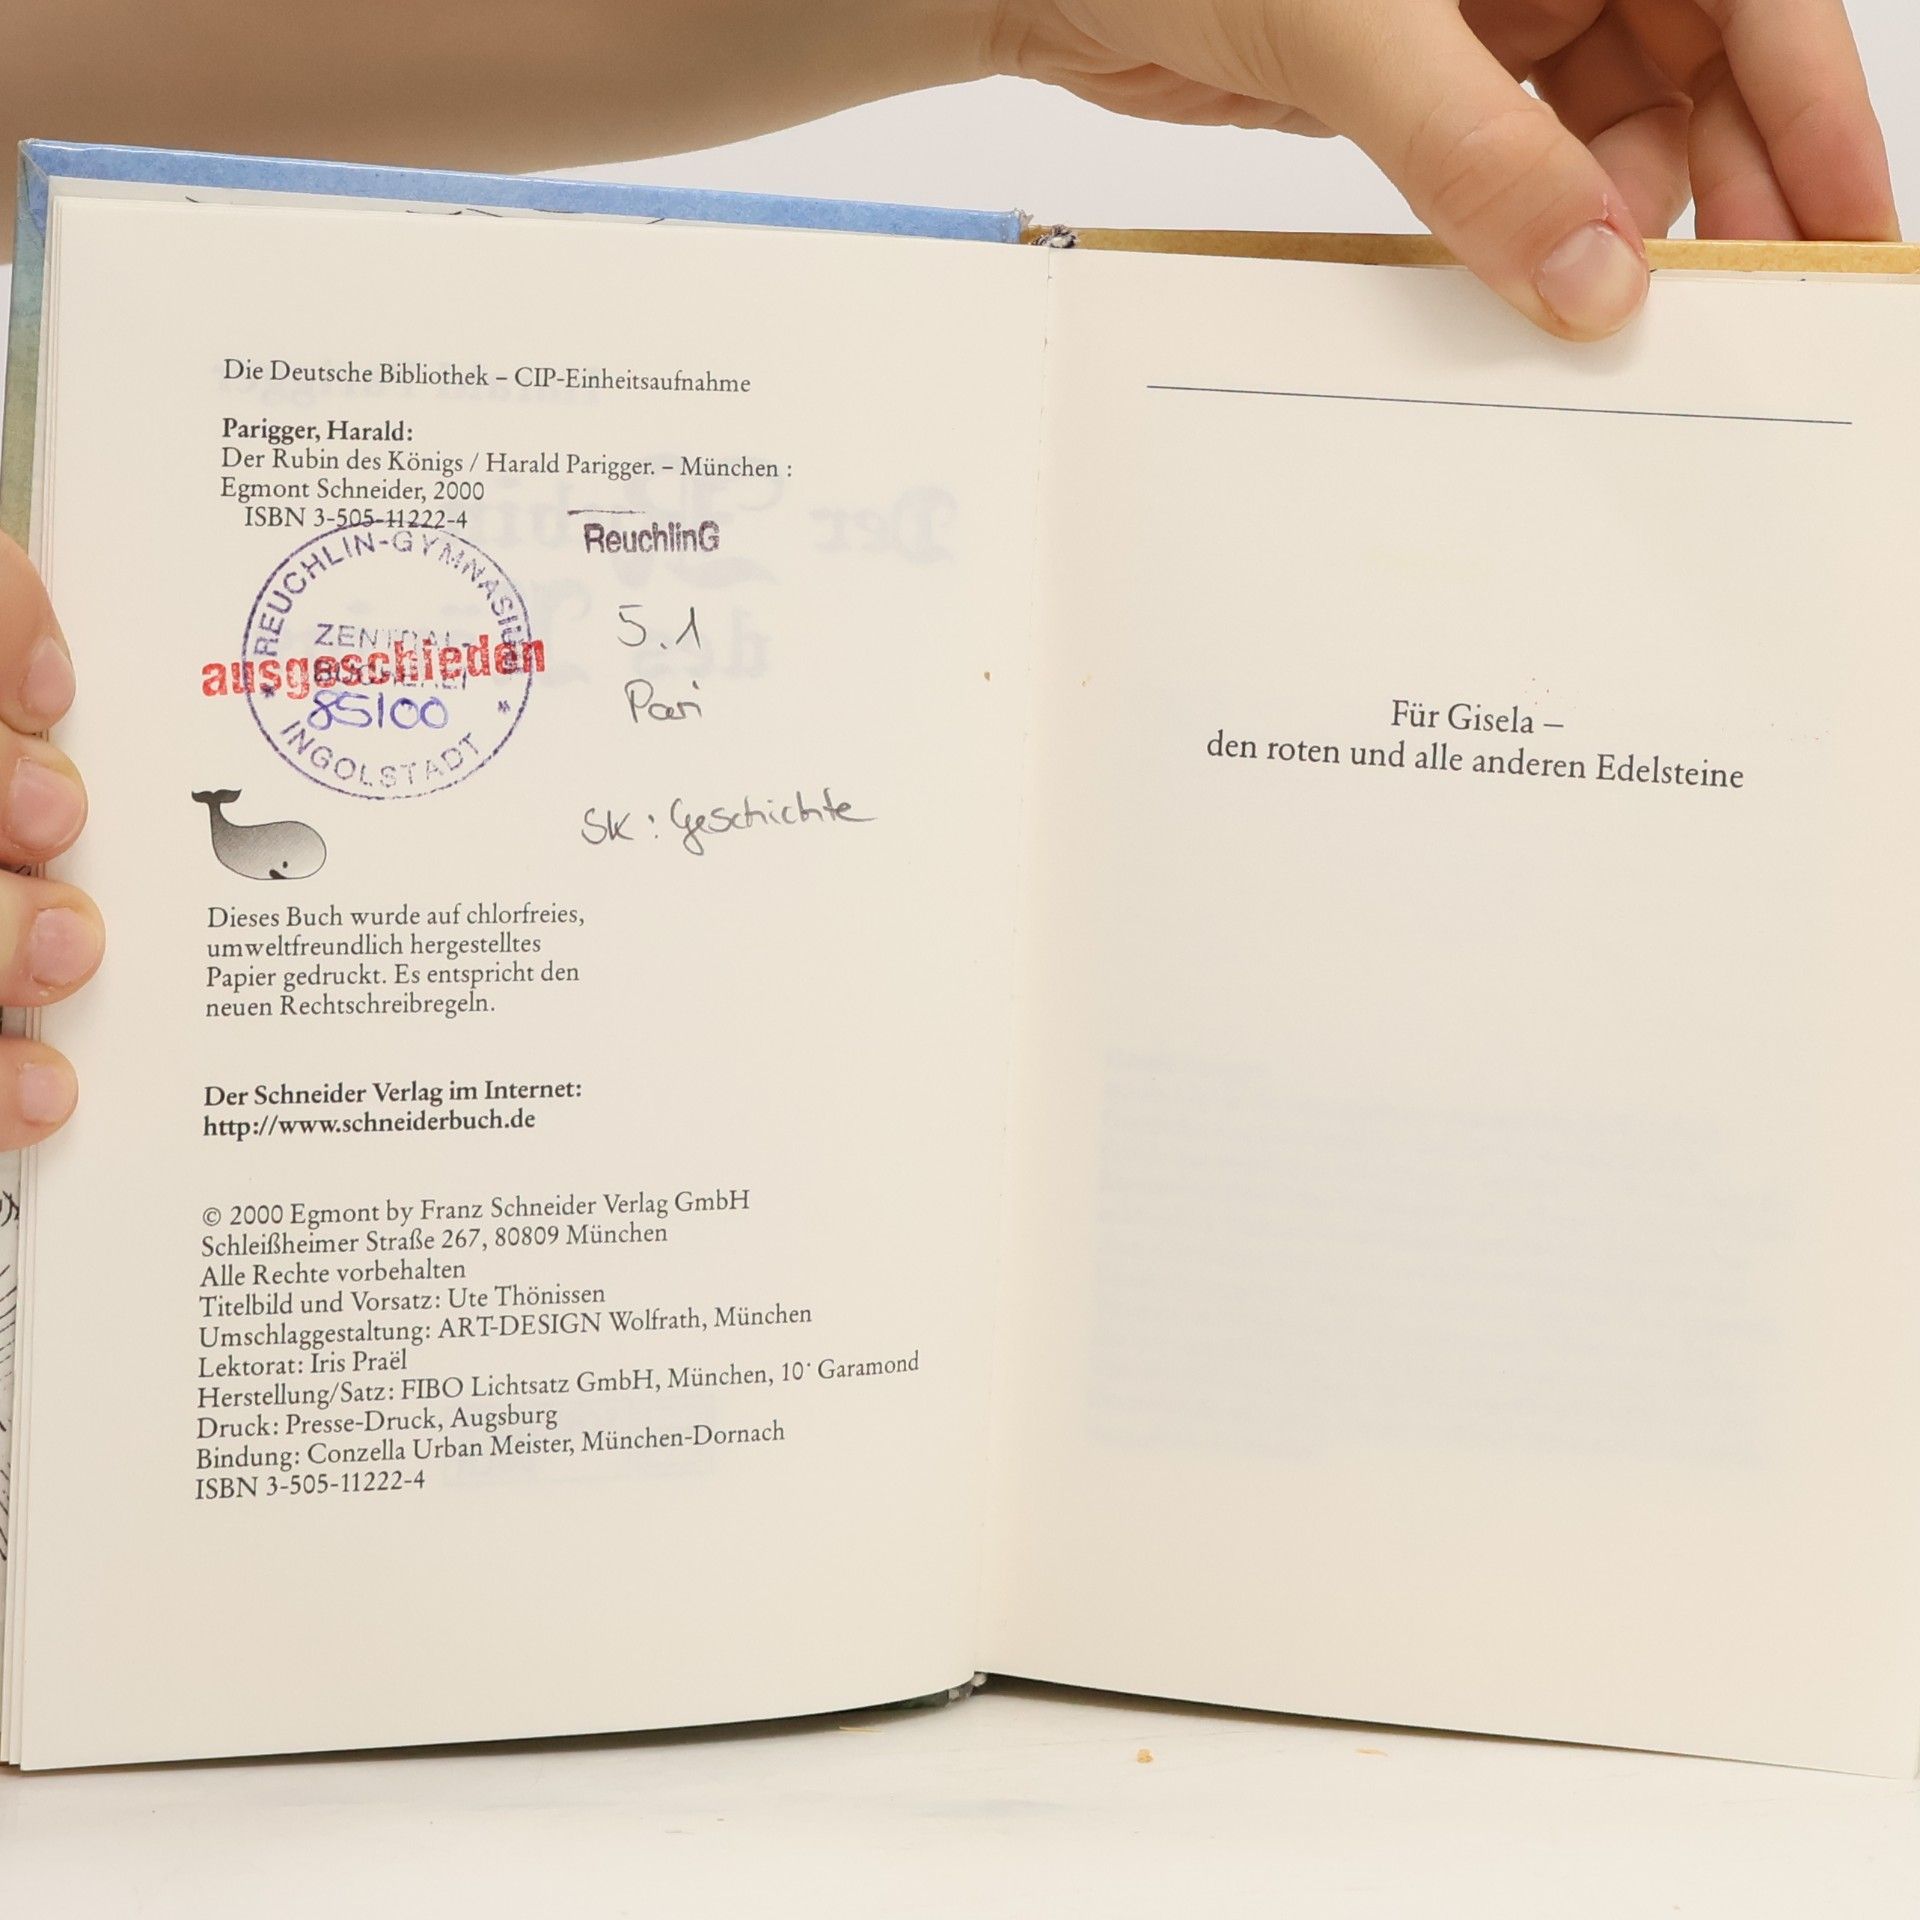 Die Deutsche Bibliothek – CIP-Einheitsaufnahme
Parigger, Harald:
Der Rubin des Königs / Harald Parigger. – München :
Egmont Schneider, 2000
ISBN 3-505-11222-4
ReuchlinG
REUCHLIN-GYMNASIUM
ZENTRAL-
ausgeschieden
85/00
* INGOLSTADT *
5.1
Pari
SK : Geschichte
Dieses Buch wurde auf chlorfreies,
umweltfreundlich hergestelltes
Papier gedruckt. Es entspricht den
neuen Rechtschreibregeln.
Der Schneider Verlag im Internet:
http://www.schneiderbuch.de
© 2000 Egmont by Franz Schneider Verlag GmbH
Schleißheimer Straße 267, 80809 München
Alle Rechte vorbehalten
Titelbild und Vorsatz: Ute Thönissen
Umschlaggestaltung: ART-DESIGN Wolfrath, München
Lektorat: Iris Praël
Herstellung/Satz: FIBO Lichtsatz GmbH, München, 10˙ Garamond
Druck: Presse-Druck, Augsburg
Bindung: Conzella Urban Meister, München-Dornach
ISBN 3-505-11222-4
Für Gisela –
den roten und alle anderen Edelsteine